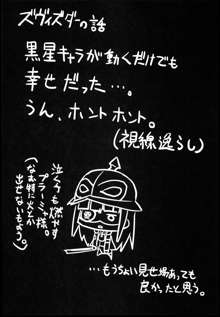 ズヴィズダーの話
黒星キャラが動くだけでも
幸せだった…。
うん、ホントホント。
(視線逸らし)
泣く子も燃やす
プラーミャ様。
(なお特に火とか
出せないもよう。)
…もうちょい見せ場あっても
良かったと思う。